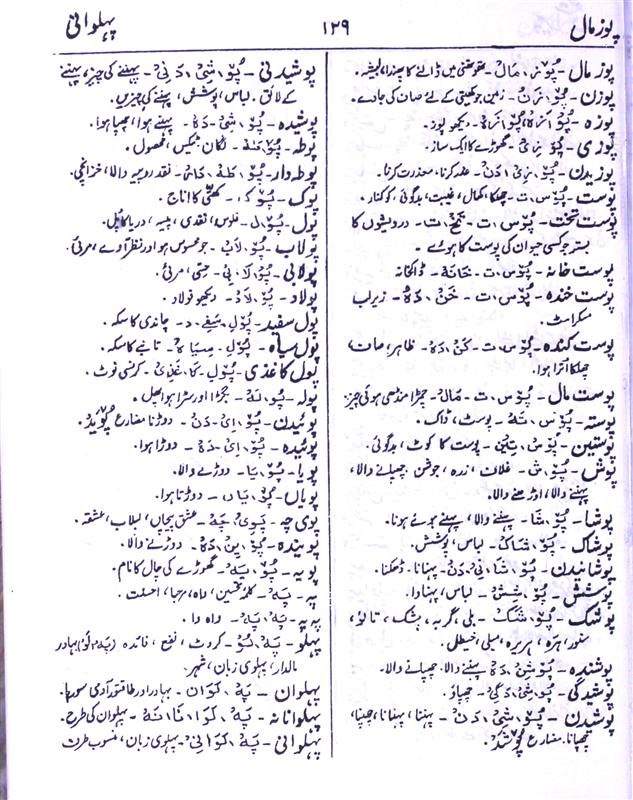 پوز مال
۱۲۹
پہلوانی
پوز مال - پُوْ، زْ، مَالْ - تھوتھنی میں ڈالنے کا پھندا، لبیشہ.
پوزن - پُوْ، زَنْ - زمین جو کھیتی کے لئے صاف کی جاوے.
پوزہ - پُوْ، زَہْ - دیکھو پوز.
پوزی - پُوْ، زِیْ - گھوڑے کا ایک ساز.
پوزیدن - پُوْ، زِیْ، دَنْ - عذر کرنا، معذرت کرنا.
پوست - پُوْ، سْ، ت - چھلکا، کھال، غیبت، بدگوئی، کوکنار.
پوست تخت - پُوْ، سْ، ت - تَخْ، ت - درویشوں کا
بستر جو کسی حیوان کی پوست کا ہو.
پوست خانہ - پُوْ، سْ، ت - خَانَہْ - ڈاکخانہ
پوست خندہ - پُوْ، سْ، ت - خَنْ، دَہْ - زیر لب
مسکراہٹ.
پوست کندہ - پُوْ، سْ، ت - کَنْ، دَہْ - ظاہر، صاف،
چھلکا اُترا ہوا.
پوست مال - پُوْ، سْ، ت - مَالْ - چمڑا منڈھی ہوئی چیز
پوستہ - پُوْ، سْ، تَہْ - پوسٹ، ڈاک.
پوستین - پُوْ، سْ، تِیْن - پوست کا کوٹ، بدگوئی.
پوش - پُوْ، ش - غلاف، زرہ، جوشن، چھپانے والا،
پہننے والا، اوڑھنے والا.
پوشا - پُوْ، شَا - پہننے والا، پہنے ہوئے ہونا.
پوشاک - پُوْ، شَاکْ - لباس، پوشش.
پوشانیدن - پُوْ، شَا، نِیْ، دَنْ - پہنانا، ڈھکنا.
پوشش - پُوْ، شِشْ - لباس، پہناوا.
پوشک - پُوْ، شَکْ - بلی، گربہ، پشک، تالو،
سنور، ہرہ، ہریرہ، میلی، خیطل.
پوشندہ - پُوْ، شِنْ، دَہْ پہننے والا، چھپانے والا.
پوشیدگی - پُوْ، شِیْ، دَ، گِیْ - چھپاؤ.
پوشیدن - پُوْ، شِیْ، دَنْ - پہننا، پہنانا، چھپنا،
چھپانا. مضارع پُوْشَدْ.
پوشیدنی - پُوْ، شِیْ، دَ، نِیْ - پہننے کی چیز، پہننے
کے لائق. لباس، پوشش، پہننے کی چیزیں.
پوشیدہ - پُوْ، شِیْ، دَہْ - پہنے ہوا، چھپا ہوا.
پوطہ - پُوْ، طَہْ - لگان، ٹیکس، محصول.
پوطہ وار - پُوْ، طَہْ، دَارْ - نقد روپیہ والا، خزانچی.
پوک - پُوْ، ک - کھتی کا اناج.
پول - پُوْ، ل - فلوس، نقدی، پیسہ، دریا کا پل.
پولاب - پُوْ، لَابْ - جو محسوس ہو اور نظر آوے، مرئی.
پولابی - پُوْ، لَا، بِیْ - حسّی، مرئی.
پولاد - پُوْ، لَادْ - دیکھو فولاد.
پول سفید - پُوْلِ، سَفِیْ، د - چاندی کا سکہ.
پول سیاہ - پُوْلِ، سِیَاہْ - تانبے کا سکہ.
پول کاغذی - پُوْلِ، کَا، غَذِیْ - کرنسی نوٹ.
پولہ - پُوْ، لَہْ - بگڑا اور سڑا ہوا پھل.
پوئیدن - پُوْ، اِیْ، دَنْ - دوڑنا مضارع پُوْیَدْ.
پوئیدہ - پُوْ، اِیْ، دَہْ - دوڑا ہوا.
پویا - پُوْ، یَا - دوڑنے والا.
پویاں - پُوْ، یَاں - دوڑتا ہوا.
پوی چہ - پَوِیْ، چَہْ - عشق پیچاں، لبلاب، عشقہ.
پویندہ - پُوْ، یِنْ، دَہْ - دوڑنے والا.
پویہ - پُوْ، یَہْ - گھوڑے کی چال کا نام.
پہ - پَہْ - کلمۂ تحسین، واہ، مرحبا، احسنت.
پہ پہ - پَہْ، پَہْ - واہ وا.
پہلو - پَہْ، لُوْ - کروٹ، نفع، فائدہ (پَہْ لَوْ) بہادر
مالدار، پہلوی زبان، شہر.
پہلوان - پَہْ، لَوَانْ - بہادر اور طاقتور آدمی سورما.
پہلوانانہ - پَہْ، لَوَا، نَا، نَہْ - پہلوان کی طرح.
پہلوانی - پَہْ، لَوَا، نِیْ - پہلوی زبان، منسوب طرف